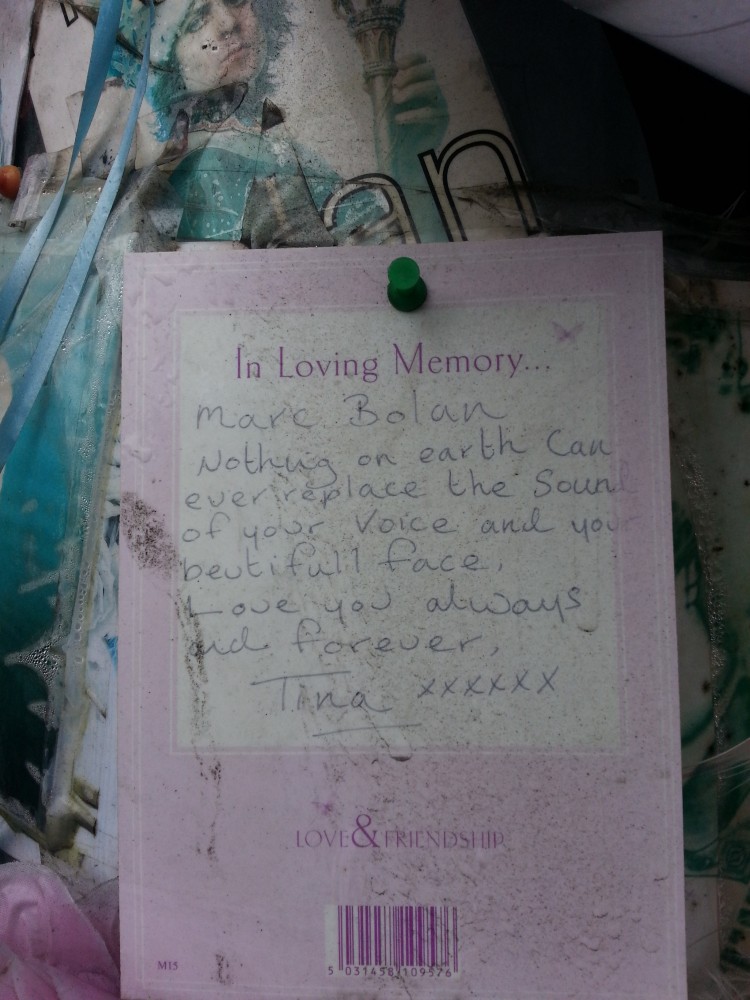 an
In Loving Memory...
Marc Bolan
Nothing on earth Can
ever replace the Sound
of your Voice and your
beutifull face.
Love you always
and forever,
Tina xxxxxx
LOVE & FRIENDSHIP
M15
5 031458 109576